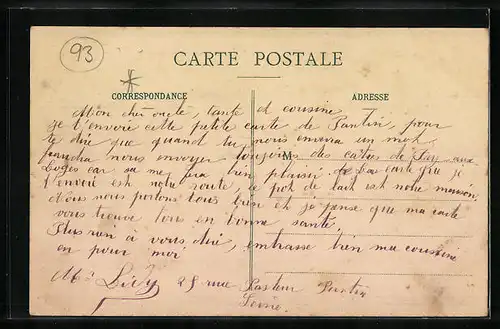 93
CARTE POSTALE
CORRESPONDANCE
ADRESSE
Mon cher oncle, tante et cousine
je t'envoie cette petite carte de Pantin, pour
te dire que quand tu nous envera un mot
faudra nous envoyer toujours des cartes de Fay aux
Loges car sa me fera bien plaisir. la carte que je
t'envoie est notre route, le pot de lait est notre maison.
Nous nous portons tous bien et je panse que ma carte
vous trouve tous en bonne santé.
Plus rien à vous dire, embrasse bien ma cousine
M
en pour moi
25 rue Pasteur Pantin
Seine